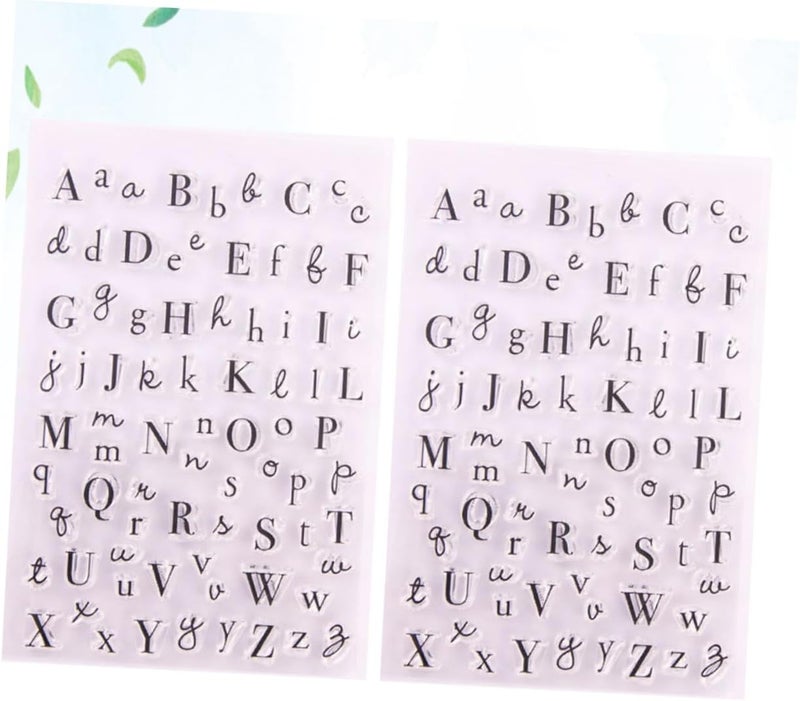 A a a B b b C c c
d d D e e E f f F
G g g H h h i I i
j j J k k K l l L
M m m N n n O o P
q Q r s o p p
q r R s S t T
t U u u V v v W w w
X x x Y y y Z z z
A a a B b b C c c
d d D e e E f f F
G g g H h h i I i
j j J k k K l l L
M m m N n n O o P
q Q r s o p p
q r R s S t T
t U u u V v v W w w
X x x Y y y Z z z